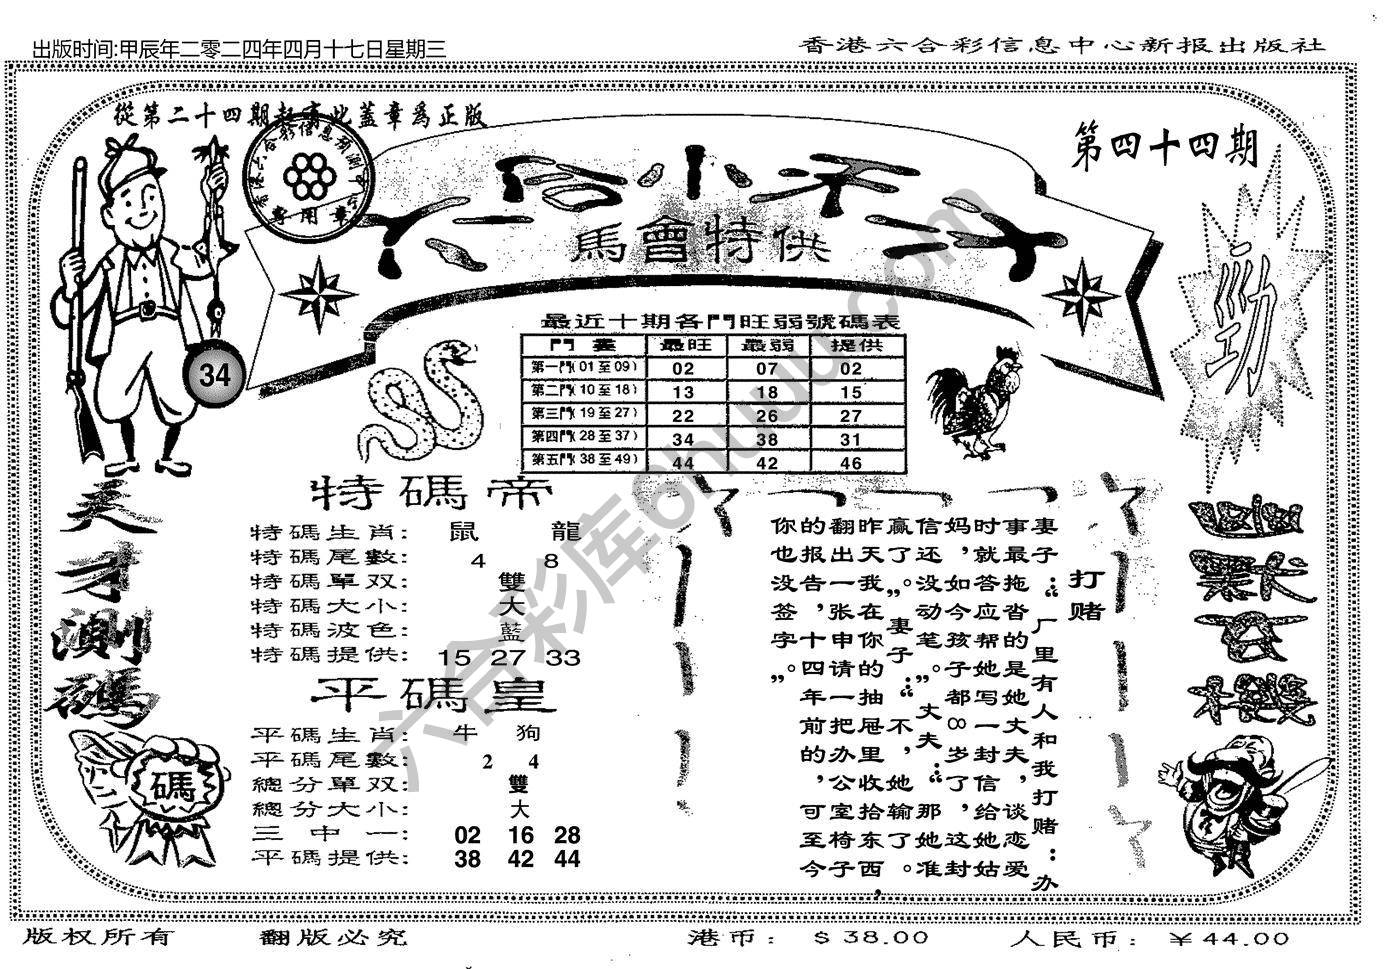 出版时间:甲辰年二零二四年四月十七日星期三
香港六合彩信息中心新报出版社
從第二十四期起有此蓋章爲正版
第四十四期
六合小天才
馬會特供
勁
34
最近十期各門旺弱號碼表
門裏 最旺 最弱 提供
第一門(01至09) 02 07 02
第二門(10至18) 13 18 15
第三門(19至27) 22 26 27
第四門(28至37) 34 38 31
第五門(38至49) 44 42 46
天才測碼
特碼帝
特碼生肖: 鼠 龍
特碼尾數: 4 8
特碼單双: 雙
特碼大小: 大
特碼波色: 藍
特碼提供: 15 27 33
平碼皇
平碼生肖: 牛 狗
平碼尾數: 2 4
總分單双: 雙
總分大小: 大
三中一: 02 16 28
平碼提供: 38 42 44
碼
打赌
妻子:“厂里有人和我打赌:办
事最拖沓的是她丈夫,谈恋爱
时就答应帮她写一封信给她姑
妈,如今孩子都8岁了,这封
信还没动笔。”丈夫:“那她准
赢了。”妻子:“不,她输了。
昨天我在你的抽屉里收拾东西,
翻出一张申请一把办公室椅子
的报告,十四年前的,可至今
你也没签字”。
六合彩库6huuu.com
版权所有
翻版必究
港币: $38.00
人民币: ￥44.00